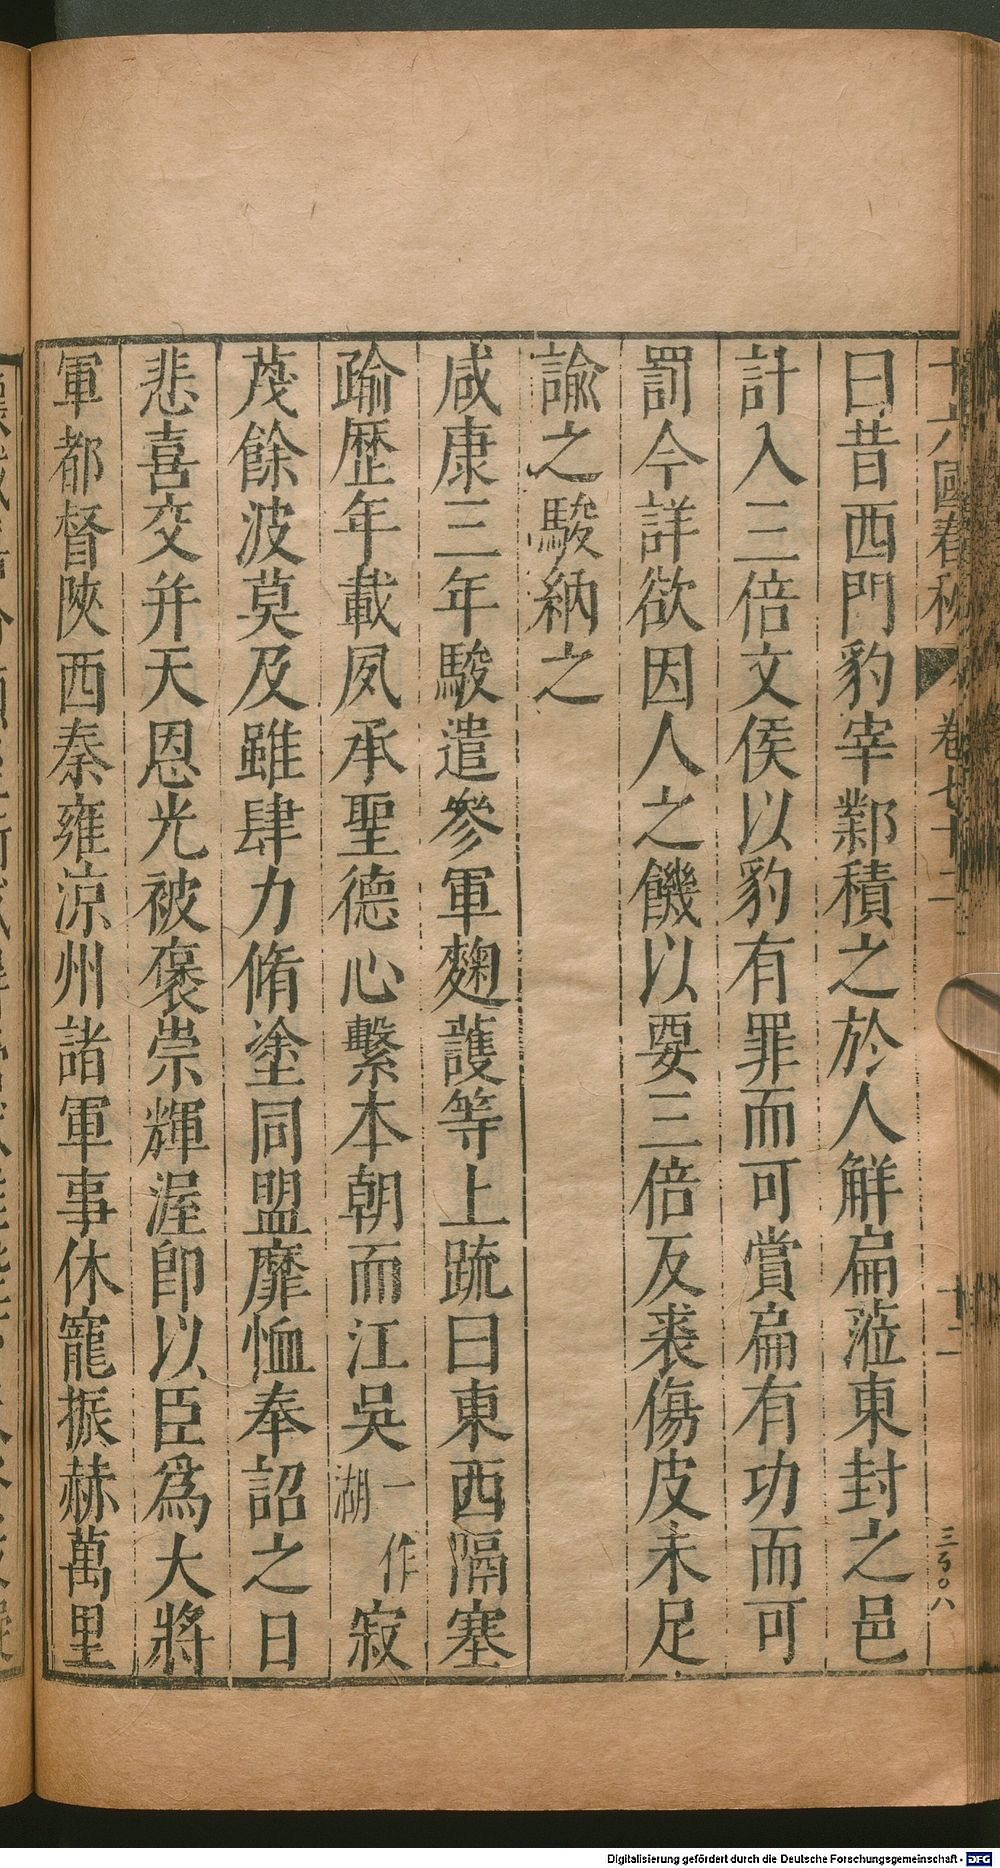 十六國春秋 卷七十二 十二 三百〇八
曰昔西門豹宰鄴積之於人解扁蒞東封之邑
計入三倍文侯以豹有罪而可賞扁有功而可
罰今詳欲因人之饑以要三倍反裘傷皮未足
諭之駿納之
咸康三年駿遣參軍麴護等上疏曰東西隔塞
踰歷年載夙承聖德心繫本朝而江吳一作湖寂
茂餘波莫及雖肆力脩塗同盟靡恤奉詔之日
悲喜交并天恩光被褒崇輝渥卽以臣為大將
軍都督陝西秦雍涼州諸軍事休寵振赫萬里
Digitalisierung gefördert durch die Deutsche Forschungsgemeinschaft - DFG